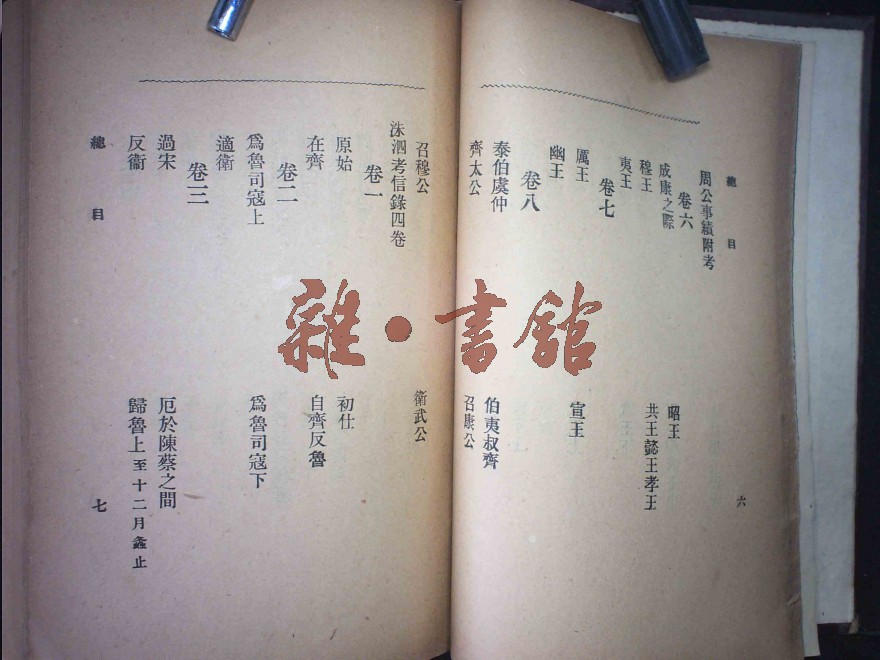 總目
六
周公事績附考
卷六
成康之際
昭王
穆王
共王懿王孝王
夷王
卷七
厲王
宣王
幽王
卷八
泰伯虞仲
伯夷叔齊
齊太公
召康公
召穆公
衛武公
洙泗考信錄四卷
卷一
原始
初仕
在齊
自齊反魯
卷二
爲魯司寇上
爲魯司寇下
適衛
卷三
過宋
厄於陳蔡之間
反衞
歸魯上至十二月螽止
總目
七
雜·書館